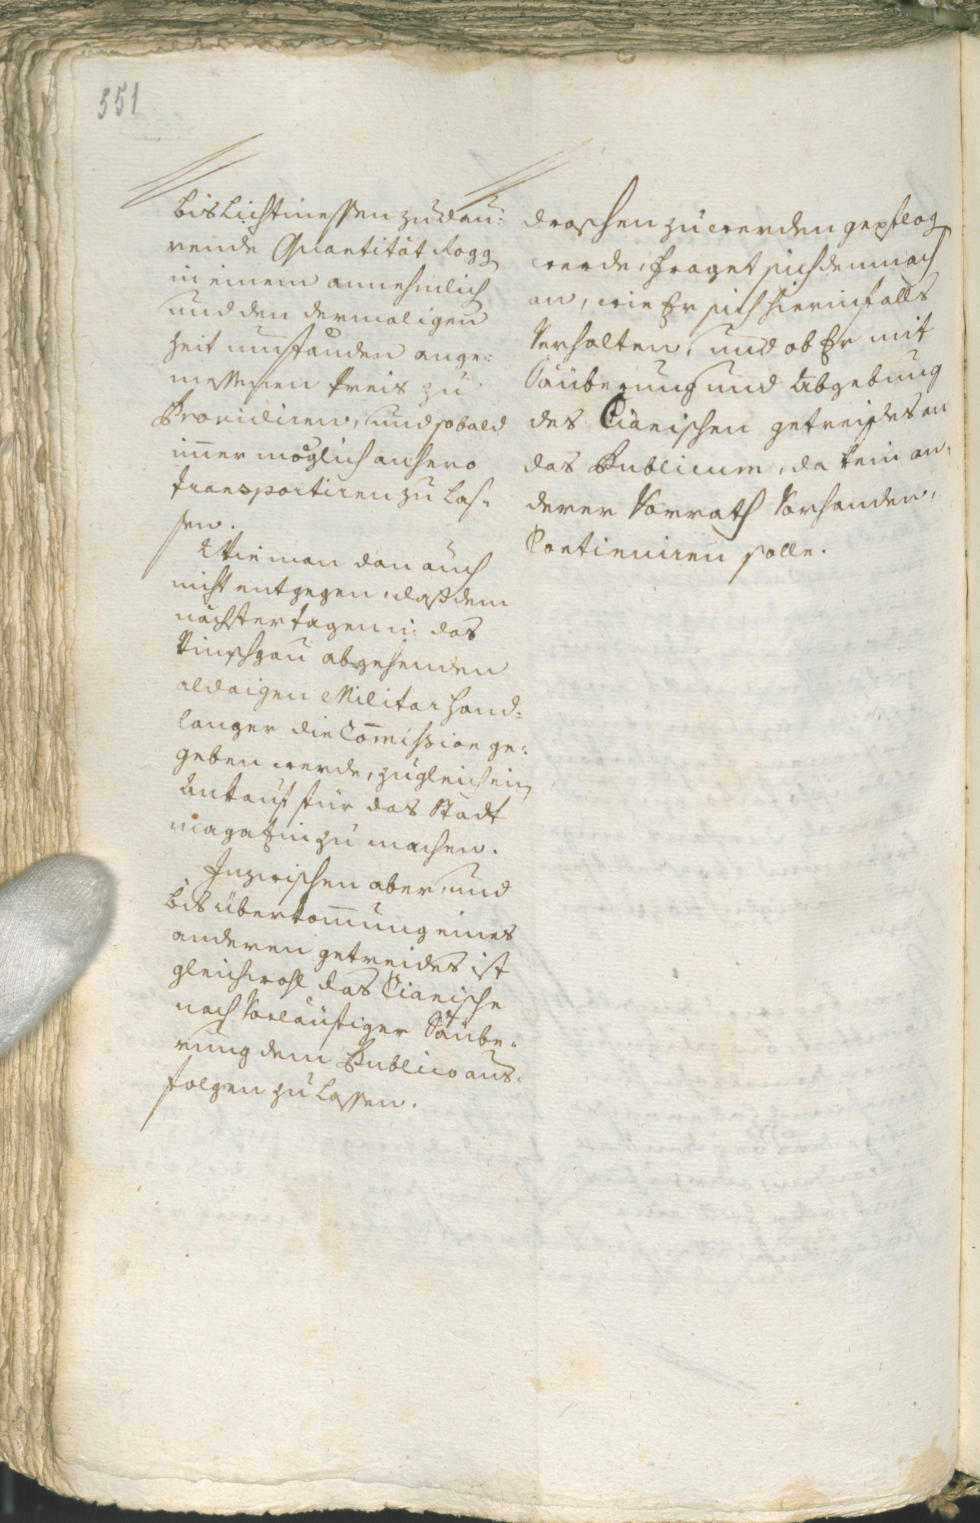 551
bis Lichtmessen zu dau:
rende Quantität Rogg
in einem annehmlich
und den dermaligen
Zeit umständen ange:
messenen Preis zu
Providiren, und sobald
im̄er möglich anhero
transportiren zu las-
sen.
Wie man dan auch
nicht entgegen, daß dem
nächster tagen in das
Vinschgau abgehenden
aldaigen Militar Hand-
langer die Com̄ission ge:
geben werde, zugleich ein
Ankauf für das Stadt
magazin zu machen.
Inzwischen aber und
bis überkom̄ung eines
anderen getreides ist
gleichwohl das Cianische
nach vorläufiger Säube-
rung dem Publico aus-
folgen zu lassen.
droschen zu werden gepfleg
werde, fraget sich demnach
an, wie Er sich hierinfalls
Verhalten, und ob Er mit
Säuberung und Abgebung
des Cianischen getreides an
das Publicum, da kein an-
derer Vorrath Vorhanden,
Continuiren solle.